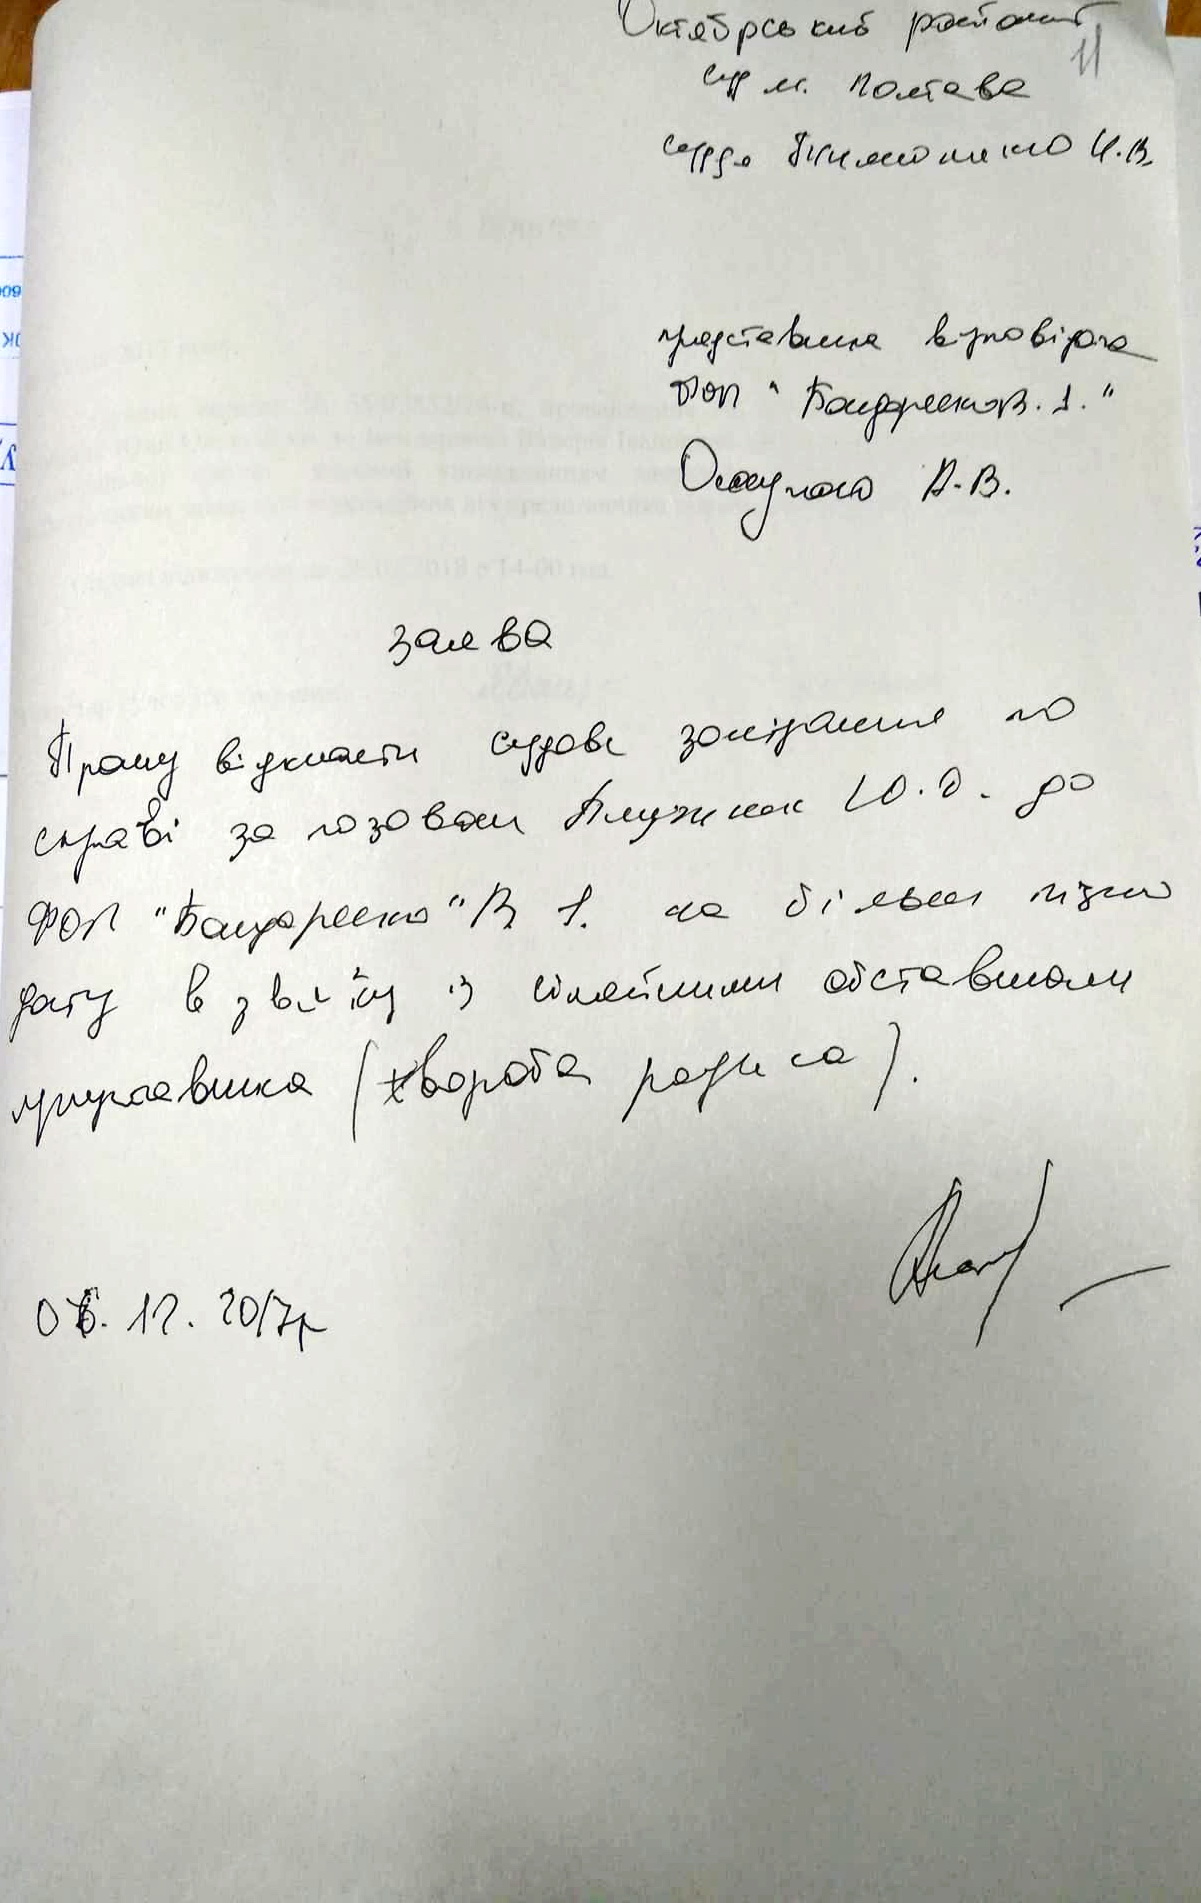 Октябрський районний
11
суд м. Полтава
судде И.В.
представника відповідача
ФОП "Бондаренко В. І."
А.В.
заява
Прошу відкласти судове засідання по
справі за позовом Плужник Ю.О. до
ФОП "Бондаренко" В І. на більш пізню
дату в звязку із сімейними обставинами
представника (хвороба родича).
06. 12. 2017р